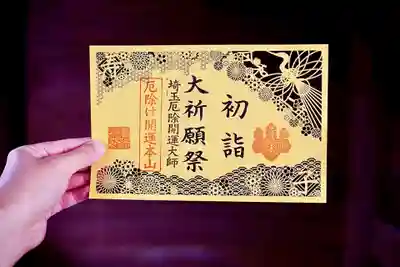 初詣
大祈願祭
埼玉厄除開運大師
厄除け開運本山